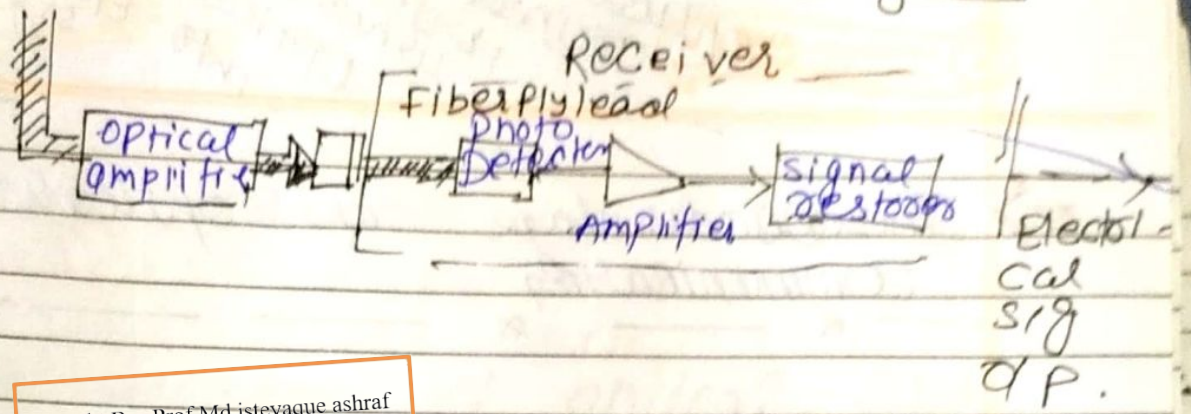 Receiver
Fiberplylead
Optical
amprifie
Photo
Detecter
Amplifier
signal
restorer
Electri-
cal
sig
O/P.
Prof Md istevaque ashraf